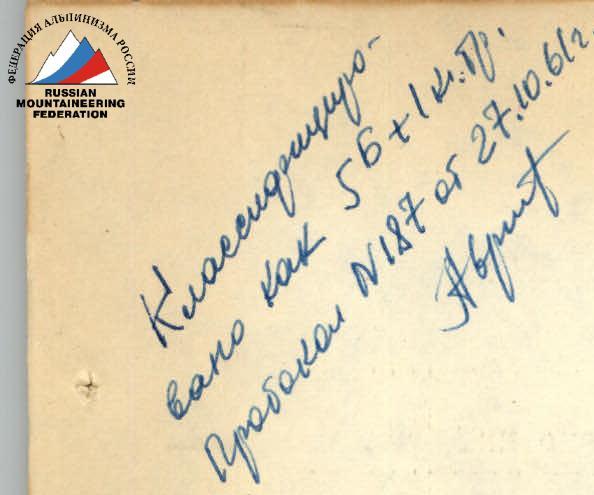 ФЕДЕРАЦИЯ АЛЬПИНИЗМА РОССИИ
RUSSIAN
MOUNTAINEERING
FEDERATION
Классифициро-
вано как 5Б + 1 кл. тр.
Протокол N187 от 27.10.61г.